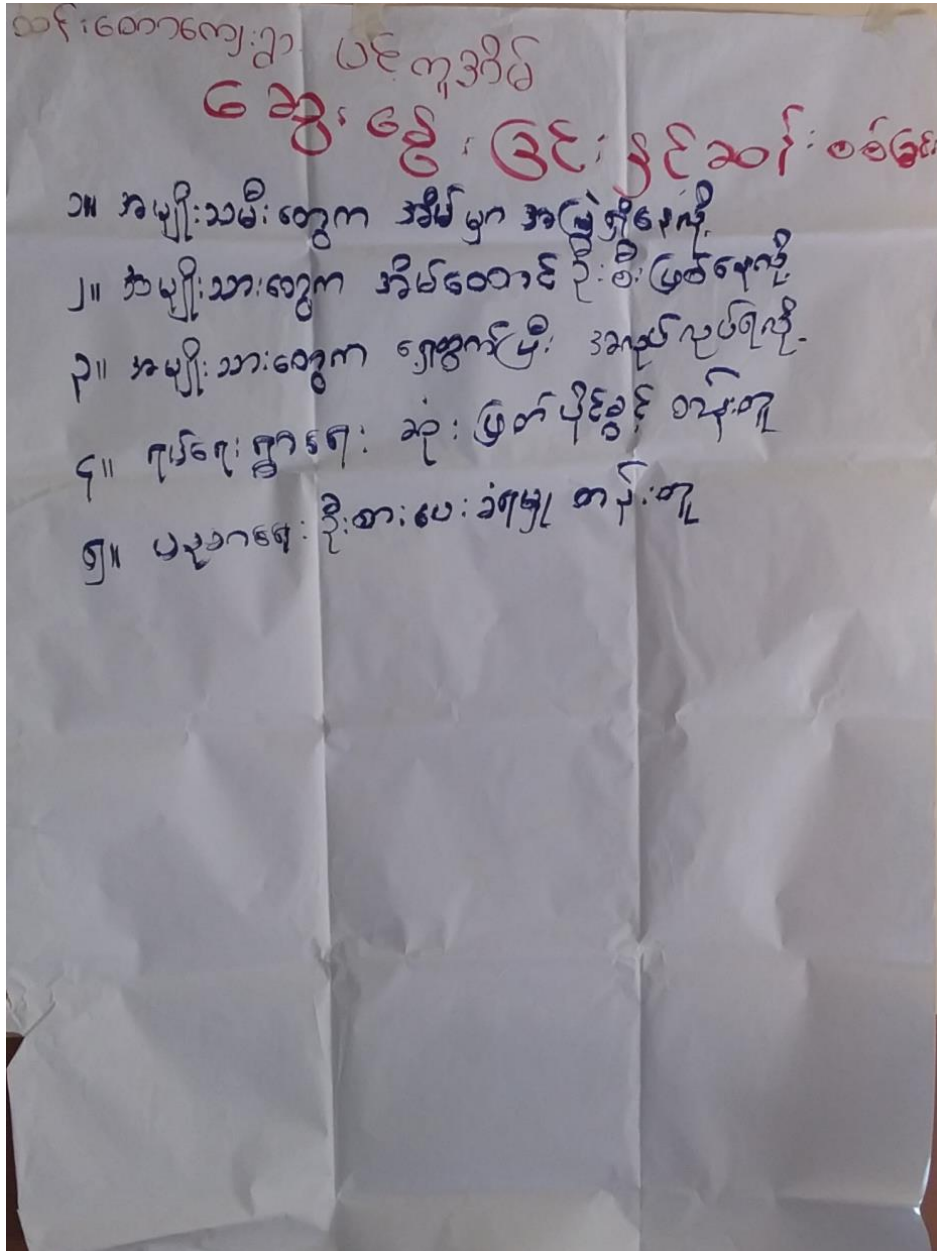 သင်းတောကျေးရွာ ပင့်ကူအိမ်
ဆွေးနွေးခြင်းနှင့်ဆန်းစစ်ခြင်း
၁။ အမျိုးသမီးတွေက အိမ်မှာ အမြဲရှိနေလို့
၂။ အမျိုးသားတွေက အိမ်ထောင်ဦးစီးဖြစ်နေလို့
၃။ အမျိုးသားတွေက ရှေ့ထွက်ပြီး အလုပ်လုပ်ရလို့
၄။ ရပ်ရေးရွာရေး ဆုံးဖြတ်ပိုင်ခွင့် တန်းတူ
၅။ ဦးစားပေးခံရမှု တန်းတူ